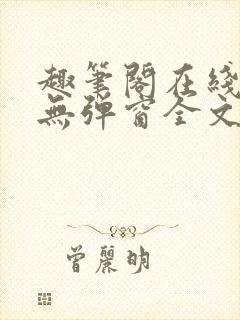 趣筆閣在綫
無彈窗全文
曾麗明